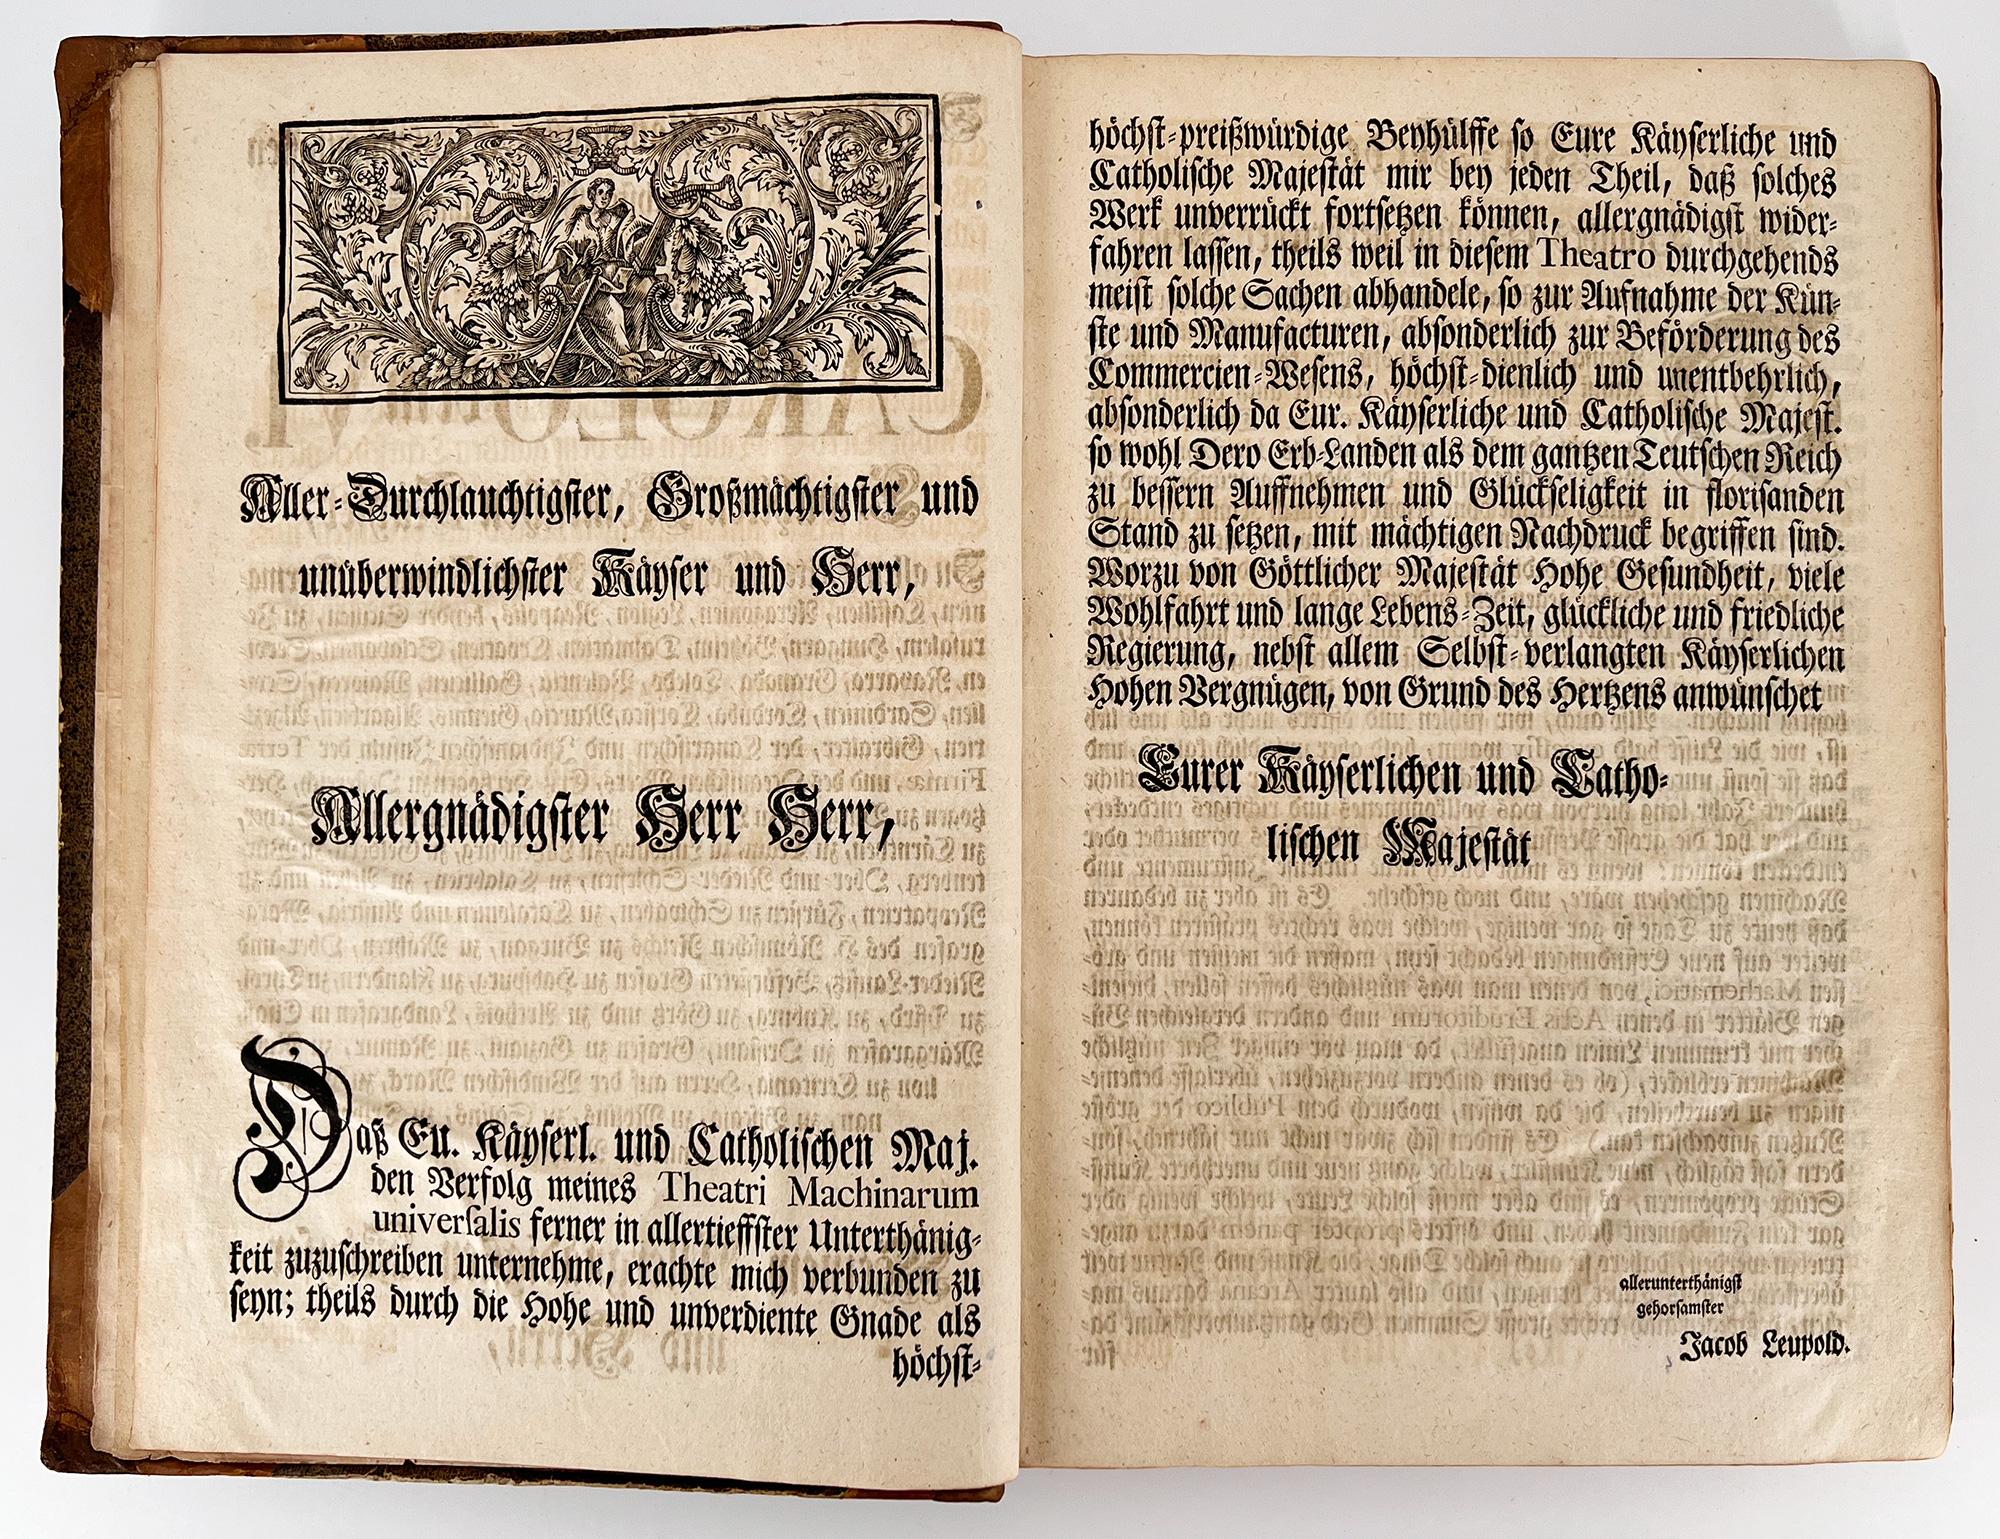 Aller-Durchlauchtigster, Großmächtigster und
unüberwindlichster Käyser und Herr,
Allergnädigster Herr Herr,
Daß Eu. Käyserl. und Catholischen Maj.
den Verfolg meines Theatri Machinarum
universalis ferner in allertieffster Unterthänig-
keit zuzuschreiben unternehme, erachte mich verbunden zu
seyn; theils durch die Hohe und unverdiente Gnade als
höchst-
höchst-preißwürdige Beyhülffe so Eure Käyserliche und
Catholische Majestät mir bey jeden Theil, daß solches
Werk unverrückt fortsetzen können, allergnädigst wider-
fahren lassen, theils weil in diesem Theatro durchgehends
meist solche Sachen abhandele, so zur Aufnahme der Kün-
ste und Manufacturen, absonderlich zur Beförderung des
Commercien-Wesens, höchst-dienlich und unentbehrlich,
absonderlich da Eur. Käyserliche und Catholische Majest.
so wohl Dero Erb-Landen als dem gantzen Teutschen Reich
zu bessern Auffnehmen und Glückseligkeit in florisanden
Stand zu setzen, mit mächtigen Nachdruck begriffen sind.
Worzu von Göttlicher Majestät Hohe Gesundheit, viele
Wohlfahrt und lange Lebens-Zeit, glückliche und friedliche
Regierung, nebst allem Selbst-verlangten Käyserlichen
Hohen Vergnügen, von Grund des Hertzens anwünschet
Eurer Käyserlichen und Catho-
lischen Majestät
allerunterthänigst
gehorsamster
Jacob Leupold.